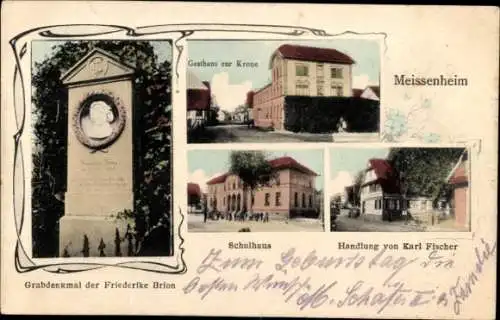 Gasthaus zur Krone
Meissenheim
Schulhaus
Handlung von Karl Fischer
Grabdenkmal der Friederike Brion
Zum Geburtstag die
besten Wünsche